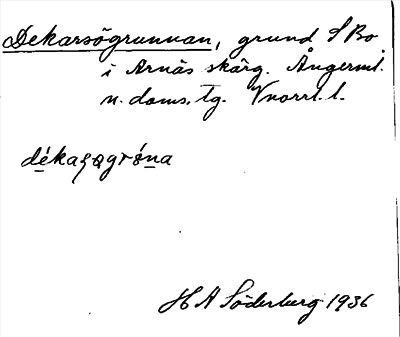 Dekarsögrunnan, grund S Bo
i Arnäs skärg. Ångerml.
n. doms. Tg. Vnorrl. l.
dékaʂøgrǿna
H A Söderberg 1936